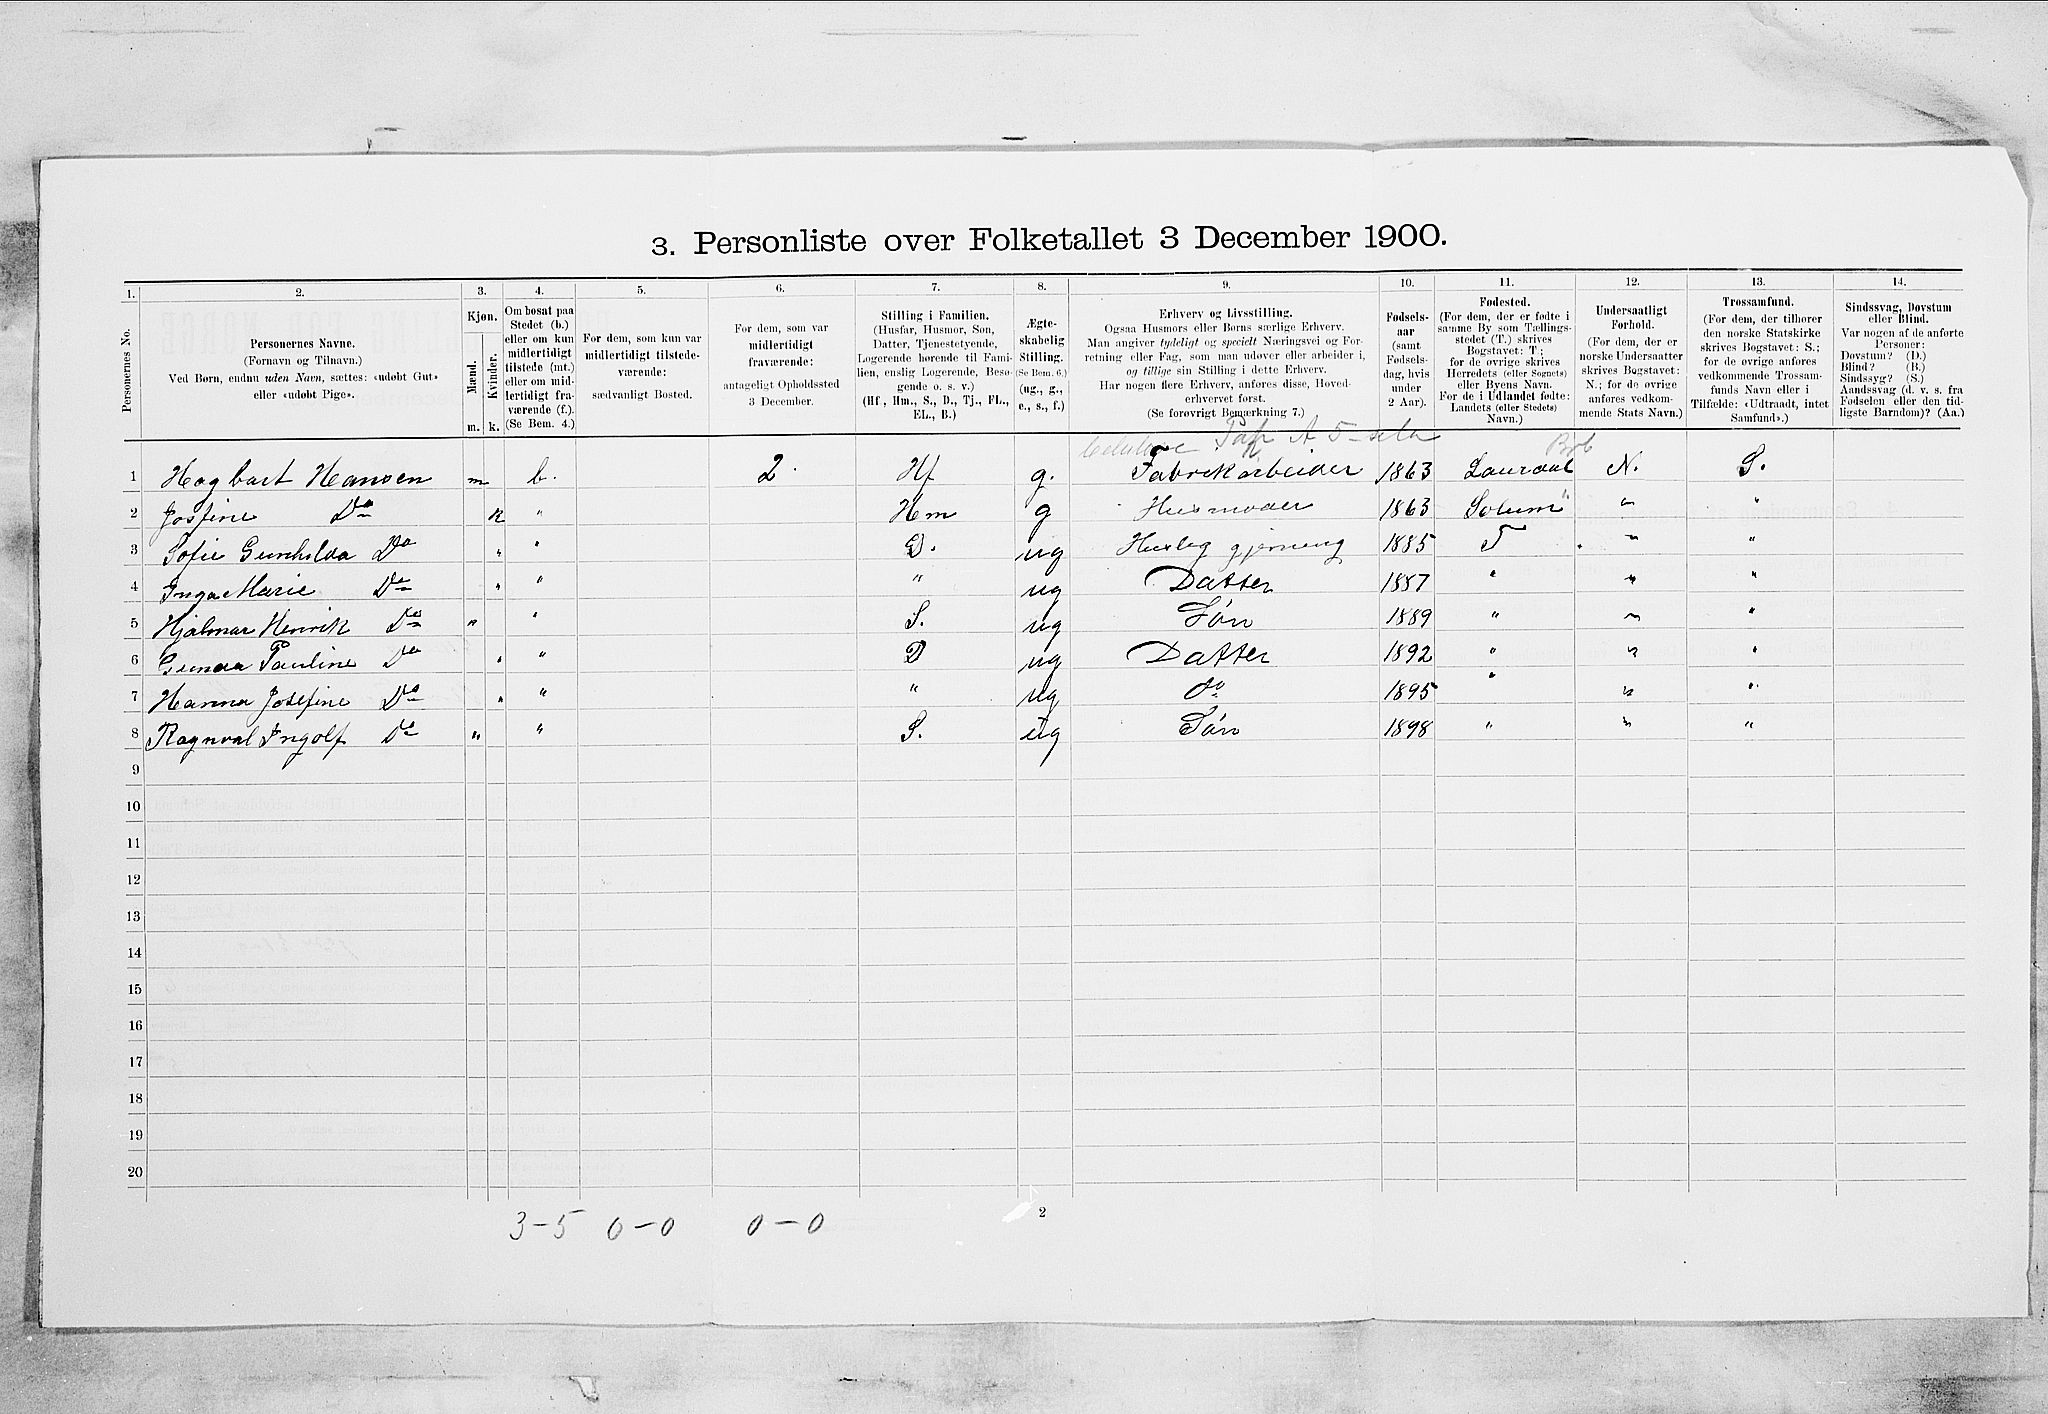 3. Personliste over Folketallet 3 December 1900.
1. 2. 3. 4. 5. 6. 7. 8. 9. 10. 11. 12. 13. 14.
Personernes No.
Personernes Navne.
(Fornavn og Tilnavn.)
Ved Børn, endnu uden Navn, sættes: «udøbt Gut»
eller «udøbt Pige».
Kjøn.
Mænd.
Kvinder.
m. k.
Om bosat paa
Stedet (b.)
eller om kun
midlertidigt
tilstede (mt.)
eller om mid-
lertidigt fra-
værende (f.).
(Se Bem. 4.)
For dem, som kun var
midlertidigt tilstede-
værende:
sædvanligt Bosted.
For dem, som var
midlertidigt
fraværende:
antageligt Opholdssted
3 December.
Stilling i Familien.
(Husfar, Husmor, Søn,
Datter, Tjenestetyende,
Logerende hørende til Fami-
lien, enslig Logerende, Besø-
gende o. s. v.)
(Hf, Hm., S., D., Tj., FL.,
EL., B.)
Ægte-
skabelig
Stilling.
(Se Bem. 6.)
(ug., g.,
e., s., f.)
Erhverv og Livsstilling.
Ogsaa Husmors eller Børns særlige Erhverv.
Man angiver tydeligt og specielt Næringsvei og For-
retning eller Fag, som man udøver eller arbeider i,
og tillige sin Stilling i dette Erhverv.
Har nogen flere Erhverv, anføres disse, Hoved-
erhvervet først.
(Se forøvrigt Bemærkning 7.)
Fødsels-
aar
(samt
Fødsels-
dag, hvis
under
2 Aar).
Fødested.
(For dem, der er fødte i
samme By som Tællings-
stedet (T.) skrives
Bogstavet: T.;
for de øvrige skrives
Herredets (eller Sognets)
eller Byens Navn.
For de i Udlandet fødte:
Landets (eller Stedets)
Navn.)
Undersaatligt
Forhold.
(For dem, der er
norske Undersaatter
skrives Bogstavet:
N.; for de øvrige
anføres vedkom-
mende Stats Navn.)
Trossamfund.
(For dem, der tilhører
den norske Statskirke
skrives Bogstavet: S.;
for de øvrige anføres
vedkommende Trossam-
funds Navn eller i
Tilfælde: «Udtraadt, intet
Samfund».)
Sindssvag, Døvstum
eller Blind.
Var nogen af de anførte
Personer:
Døvstum? (D.)
Blind? (B.)
Sindssyg? (S.)
Aandssvag (d. v. s. fra
Fødselen eller den tid-
ligste Barndom)? (Aa.)
1 Hagbart Hansen m b. 2. Hf g. Fabrikarbeider 1863 Laurdal N. S.
2 Josfine Do k " Hm g Husmoder 1863 Solum " "
3 Sofie Gunhilda Do " " D. ug Huslig gjerning 1885 T " "
4 Inga Marie Do " " " ug Datter 1887 " " "
5 Hjalmar Henrik Do " " S. ug Søn 1889 " " "
6 Gunda Pauline Do " " D ug Datter 1892 " " "
7 Hanna Josefine Do " " " ug do 1895 " " "
8 Ragnval Ingolf Do " " S. ug Søn 1898 " " "
9
10
11
12
13
14
15
16
17
18
19
20
3-5 0-0 0-0
2